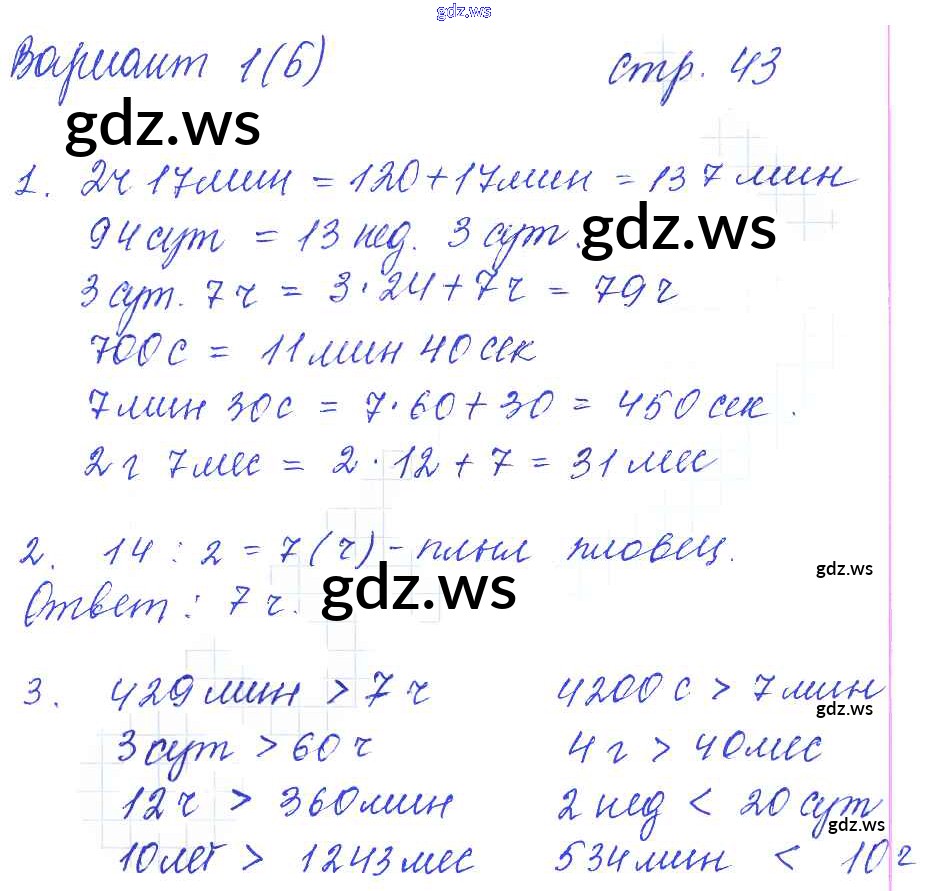 gdz.ws
Вариант 1(б) стр. 43
gdz.ws
1. 2ч 17мин = 120+17мин = 137мин
94сут = 13 нед. 3 сут. gdz.ws
3 сут. 7ч = 3·24+7ч = 79ч
700с = 11мин 40сек
7мин 30с = 7·60+30 = 450сек.
2г 7мес = 2·12+7 = 31мес
2. 14 : 2 = 7(ч) – плыл пловец.
gdz.ws
Ответ: 7ч. gdz.ws
3. 429мин > 7ч 4200с > 7мин
gdz.ws
3 сут > 60ч 4г > 40мес
12ч > 360мин 2нед < 20сут
gdz.ws
10лет > 1243мес 534мин < 10ч